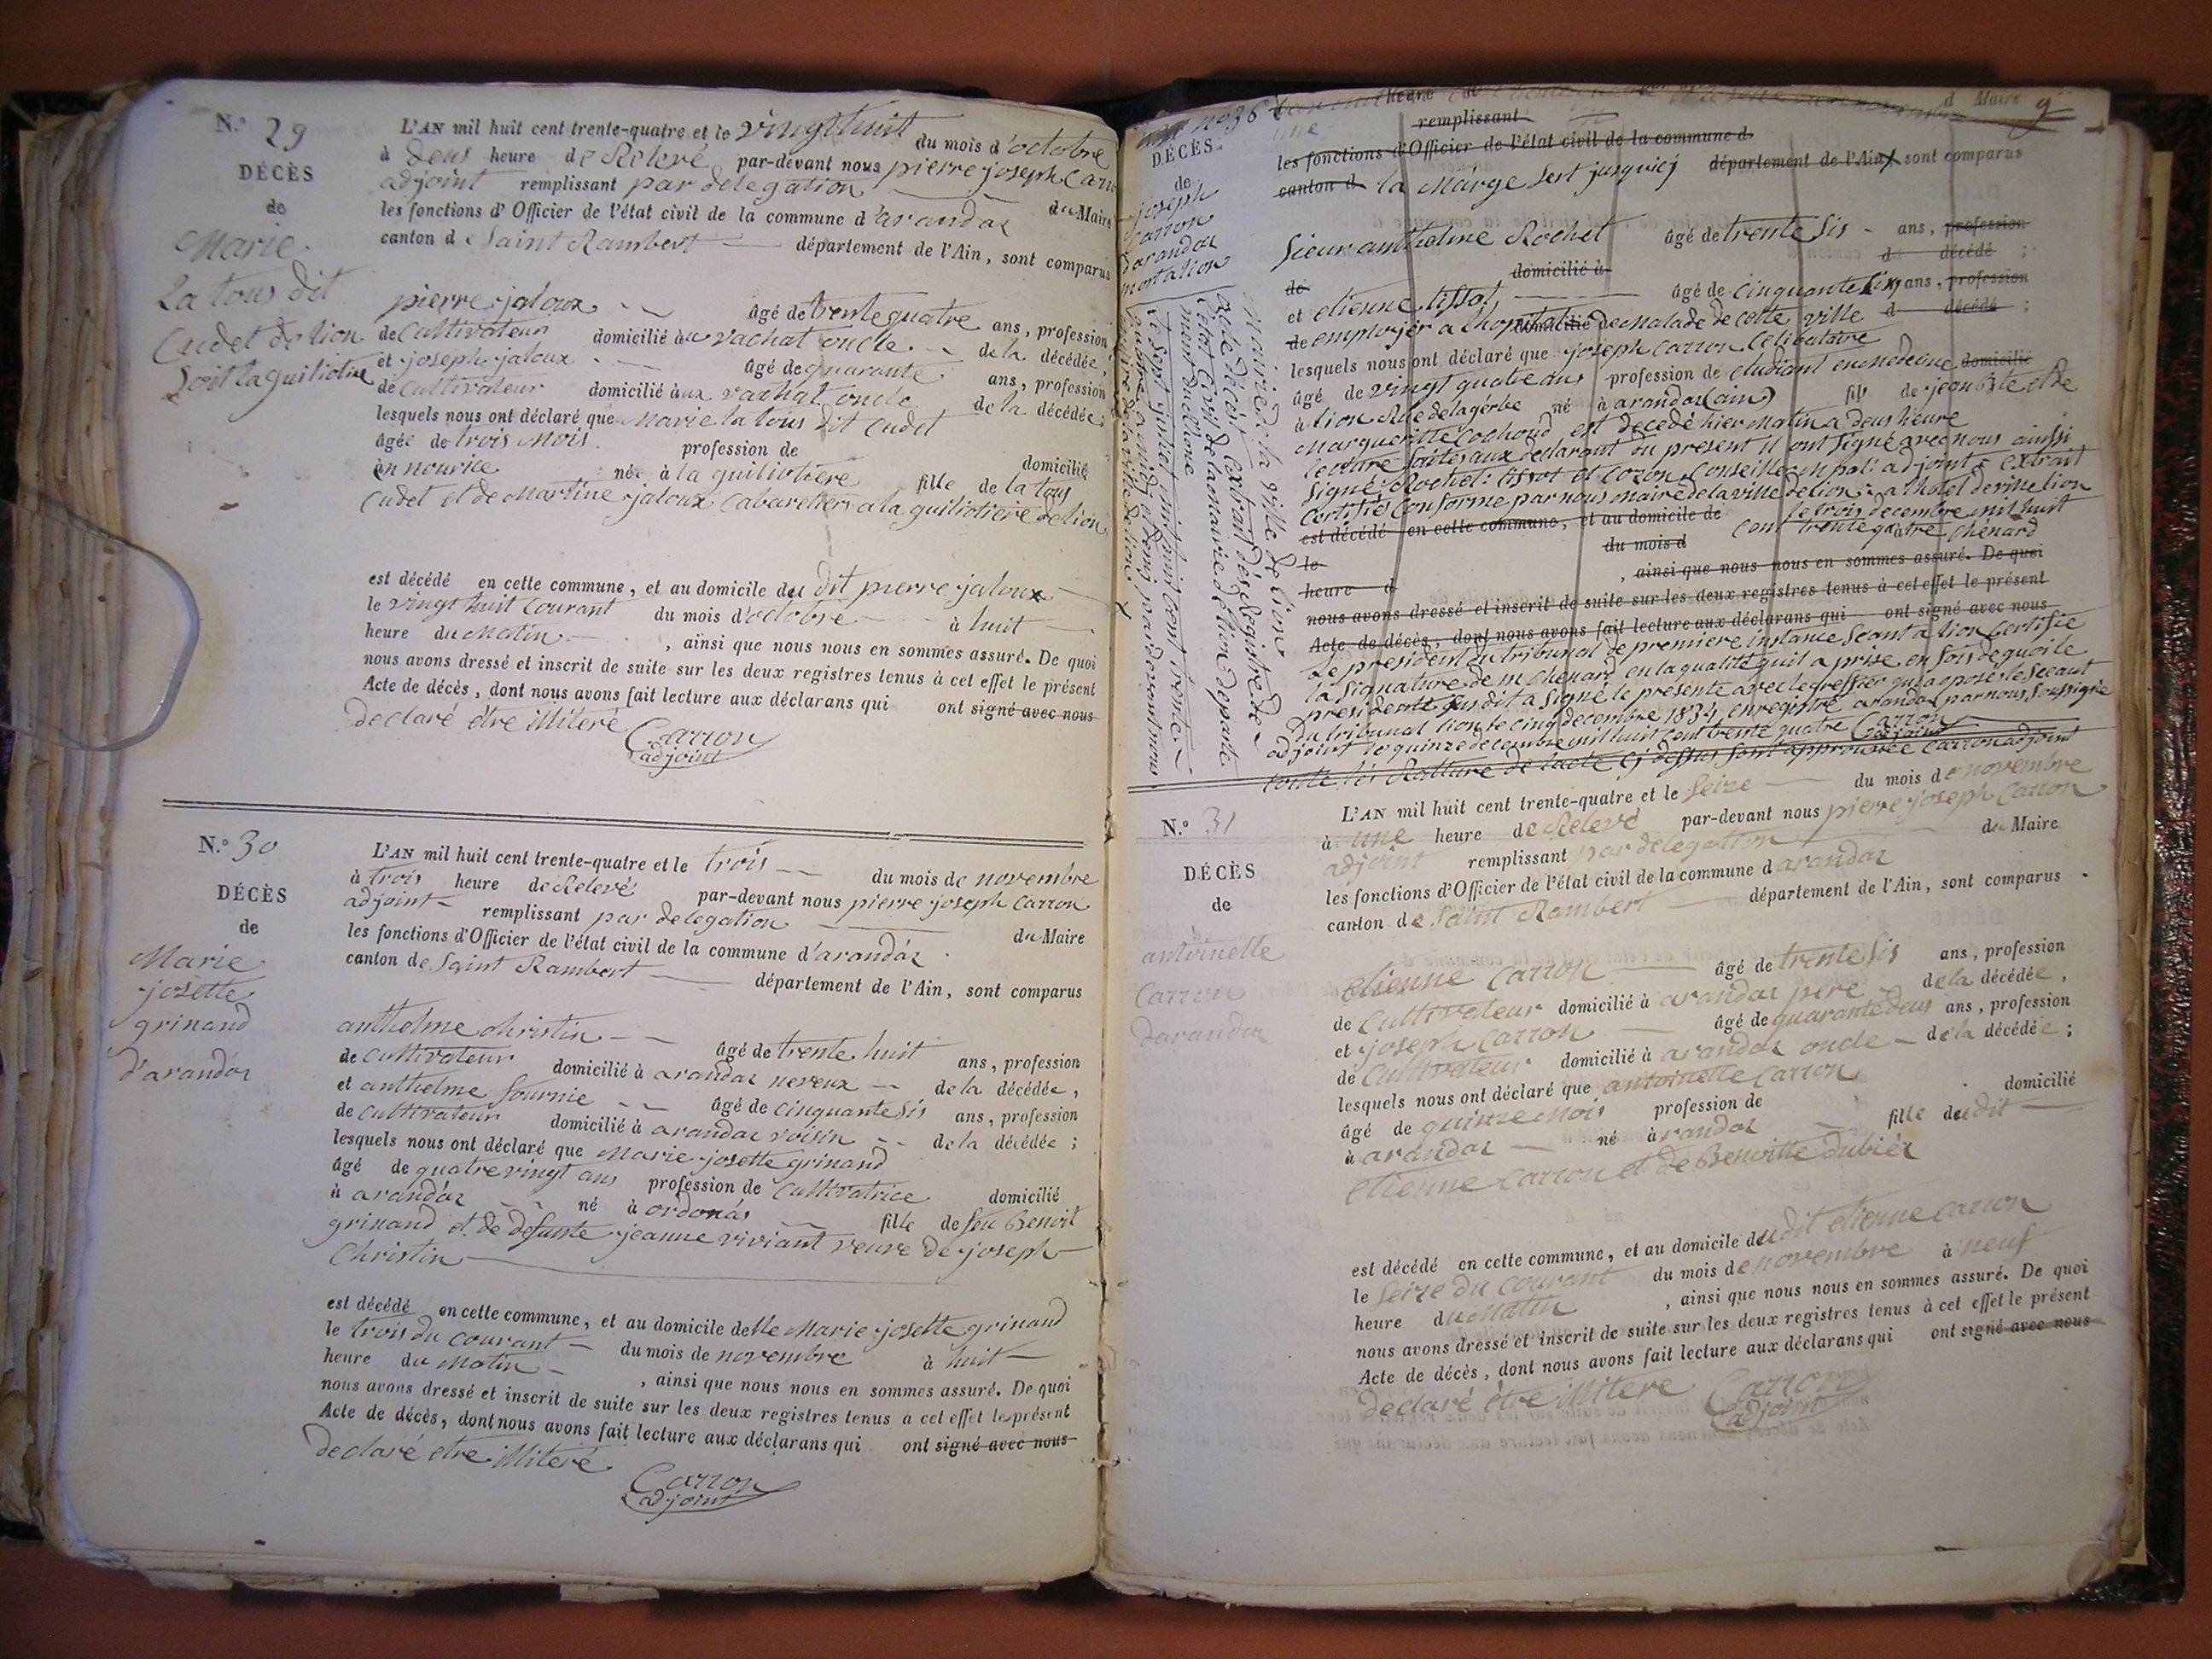 N.º 29
DÉCÈS
de
Marie
La tous dit
Cudet de lion
Soit la guiliotiere
L'AN mil huit cent trente-quatre et le vingt huit du mois d'octobre
à deus heure de Relevé par-devant nous pierre joseph Carron
adjoint remplissant par delegation du Maire
les fonctions d'Officier de l'état civil de la commune d'arandas
canton de Saint Rambert département de l'Ain, sont comparus
pierre jaloux âgé de trente quatre ans, profession
de Cultivateur domicilié au vachat oncle de la décédée,
et joseph jaloux âgé de quarante ans, profession
de Cultivateur domicilié aux vachat oncle de la décédée;
lesquels nous ont déclaré que Marie la tous dit Cudet
âgée de trois Mois profession de domicilié
en nourice née à la guiliotiere fille de la tous
Cudet et de Martine jaloux Cabaretiers a la guiliotiere de lion
est décédé en cette commune, et au domicile du dit pierre jaloux
le vingt huit Courant du mois d'octobre à huit
heure du Matin, ainsi que nous nous en sommes assuré. De quoi
nous avons dressé et inscrit de suite sur les deux registres tenus à cet effet le présent
Acte de décès, dont nous avons fait lecture aux déclarans qui ont signé avec nous
declaré être illiteré Carron
adjoint
N.º 30
DÉCÈS
de
Marie
josette
grinand
d'arandas
L'AN mil huit cent trente-quatre et le trois du mois de novembre
à trois heure de Relevé par-devant nous pierre joseph Carron
adjoint remplissant par delegation du Maire
les fonctions d'Officier de l'état civil de la commune d'arandas
canton de Saint Rambert département de l'Ain, sont comparus
anthelme christin âgé de trente huit ans, profession
de Cultivateur domicilié à arandas neveux de la décédée,
et anthelme fournie âgé de cinquante sis ans, profession
de Cultivateur domicilié à arandas voisin de la décédée;
lesquels nous ont déclaré que Marie josette grinand
âgé de quatre vingt ans profession de Cultivatrice domicilié
à arandas né à ordonas fille de feu Benoit
grinand et de defunte jeanne viviant veuve de joseph
Christin
est décédé en cette commune, et au domicile de lle Marie josette grinand
le trois du courant du mois de novembre à huit
heure du Matin, ainsi que nous nous en sommes assuré. De quoi
nous avons dressé et inscrit de suite sur les deux registres tenus à cet effet le présent
Acte de décès, dont nous avons fait lecture aux déclarans qui ont signé avec nous
declaré etre illiteré
Carron
adjoint
nº 36 heure d Maire 9
une remplissant
DÉCÈS
de
joseph
Carron
d'arandas
les fonctions d'Officier de l'état civil de la commune d
canton d la Marge sert jusquicj département de l'Ain, sont comparus
Mairie de la ville de lion
acte de décès Extrait dès Registre de
l'état Civil de la Mairie de lion departe
ment du Rhone
Le sept juillet mil huit cent trente
quatre a midi et demi pardevant nous
Maire de la ville de lion
Sieur anthelme Rochet âgé de trente sis ans, profession
de domicilié à d décédé;
et etienne tissot âgé de cinquante six ans, profession
de employer a lhopital domicilié de Malade de cette ville d décédé;
lesquels nous ont déclaré que joseph Carron Celibataire
âgé de vingt quatre ans profession de etudiant en medecine domicilié
à lion Rue de la gerbe né à arandas (ain) fils de jean Bte et de
Margueritte Cochoud est decedé hier Matin a deus heure
lecture faites aux declarant ou present il ont signé avec nous ainssi
signé Rochet: tissot et Cozon Conseiller mpal: adjoint Extrait
Certifié Conforme par nous maire de la ville de lion: a lhotel de ville lion
est décédé en cette commune, et au domicile de le trois decembre mil huit
le du mois d cent trente quatre chénard
heure d, ainsi que nous nous en sommes assuré. De quoi
nous avons dressé et inscrit de suite sur les deux registres tenus à cet effet le présent
Acte de décès, dont nous avons fait lecture aux déclarans qui ont signé avec nous
Le president du tribunal de premiere instance Seant a lion Certifie
la Signature de m chenard en la qualité quil a prise en fois de quoi le
president susdit a Signé le presente avec le greffier qui a oposé le Sceaut
du tribunal lion le cinq decembre 1834 enregistré arandas par nous Soussigné
adjoint le quinze decembre mil huit Cent trente quatre Carron
adjoint
toute les Ratture de lacte Cj dessus Sont approuvée Carron adjoint
N.º 31
DÉCÈS
de
antoinette
Carron
darandas
L'AN mil huit cent trente-quatre et le Seize du mois de novembre
à une heure de Relevé par-devant nous pierre joseph Carron
adjoint remplissant par delegation du Maire
les fonctions d'Officier de l'état civil de la commune d'arandas
canton de Saint Rambert département de l'Ain, sont comparus
etienne Carron âgé de trente sis ans, profession
de Cultivateur domicilié à arandas pere de la décédée,
et joseph Carron âgé de quarante deus ans, profession
de Cultivateur domicilié à arandas oncle de la décédée;
lesquels nous ont déclaré que antoinette Carron
âgé de quinze Mois profession de domicilié
à arandas né à arandas fille du dit
etienne Carron et de Benoitte dubiés
est décédé en cette commune, et au domicile du dit etienne Carron
le Seize du Courant du mois de novembre à neuf
heure du Matin, ainsi que nous nous en sommes assuré. De quoi
nous avons dressé et inscrit de suite sur les deux registres tenus à cet effet le présent
Acte de décès, dont nous avons fait lecture aux déclarans qui ont signé avec nous
declaré être illitere Carron
adjoint